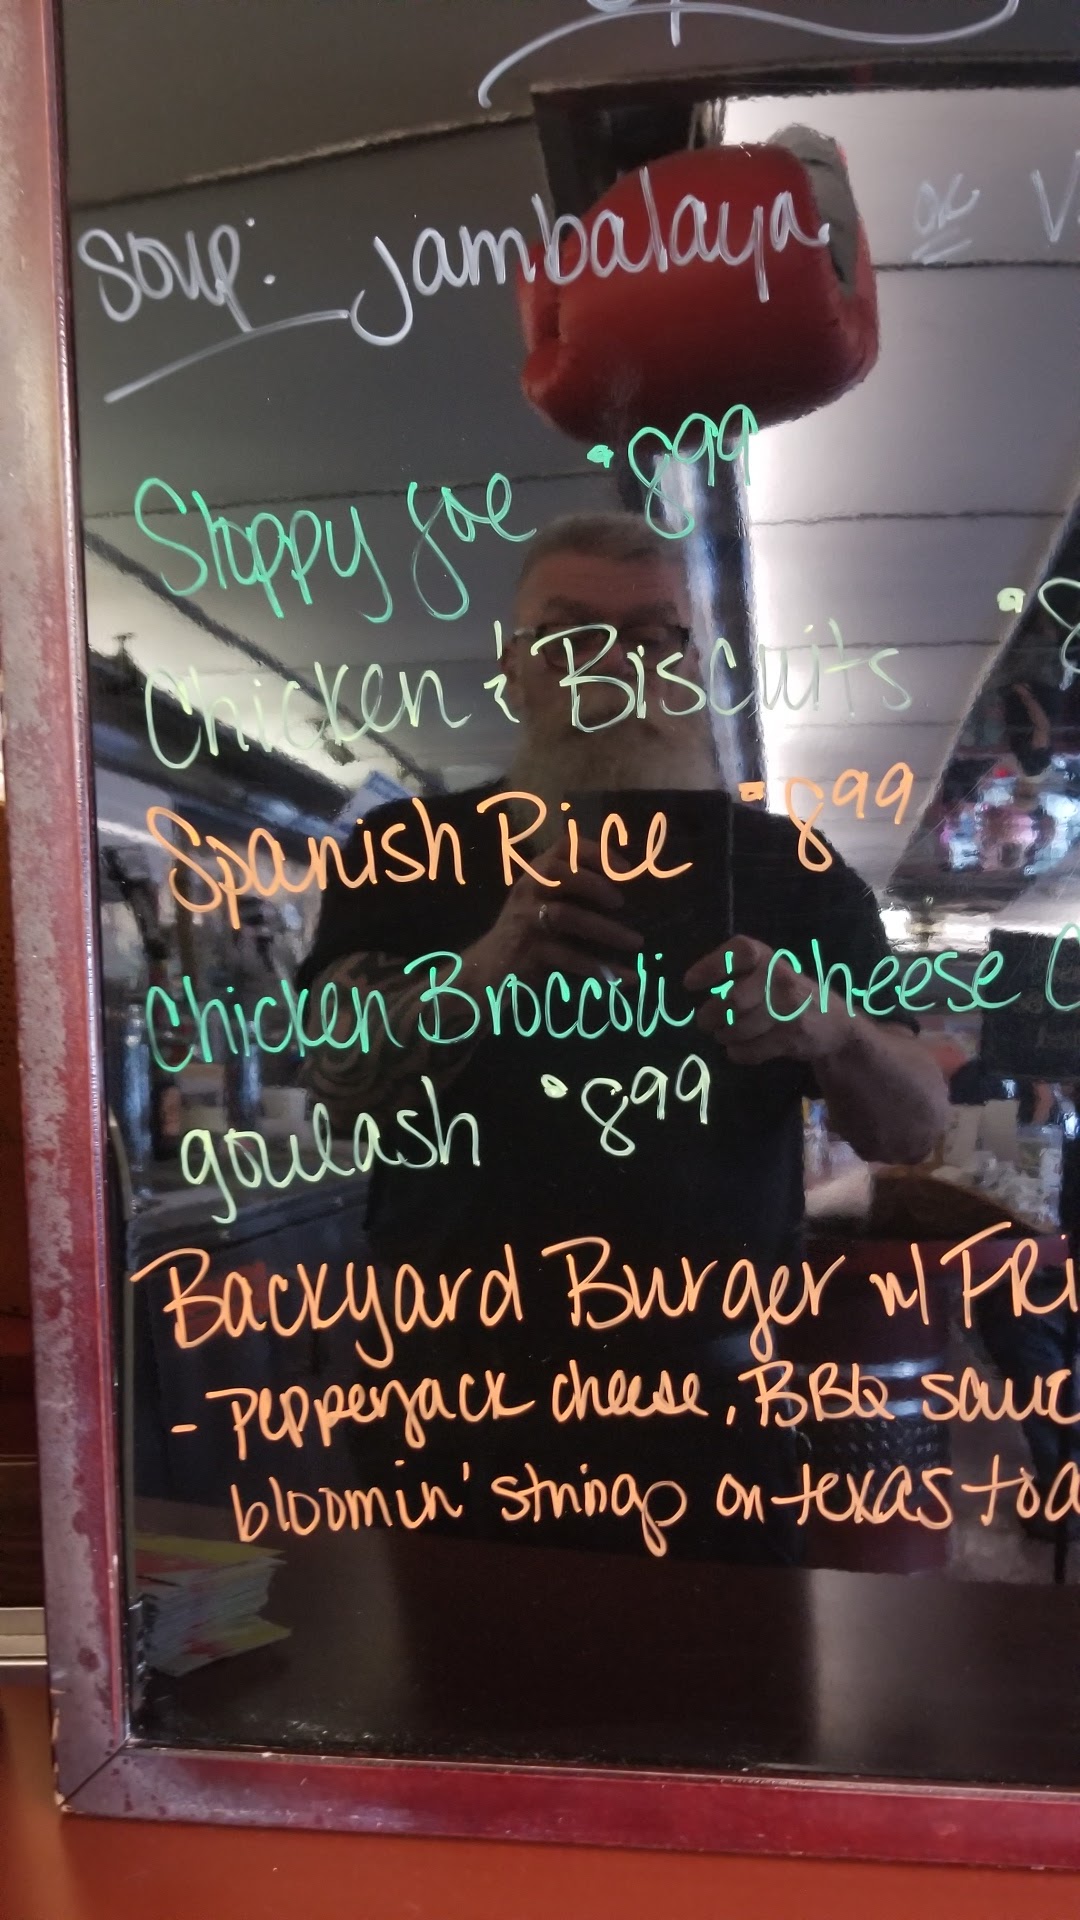 soup: jambalaya or
Sloppy Joe • 8.99
Chicken & Biscuits •
Spanish Rice - 8.99
Chicken Broccoli & Cheese
goulash • 8.99
Backyard Burger w/
- pepperjack cheese, BBQ
bloomin' strings on texas